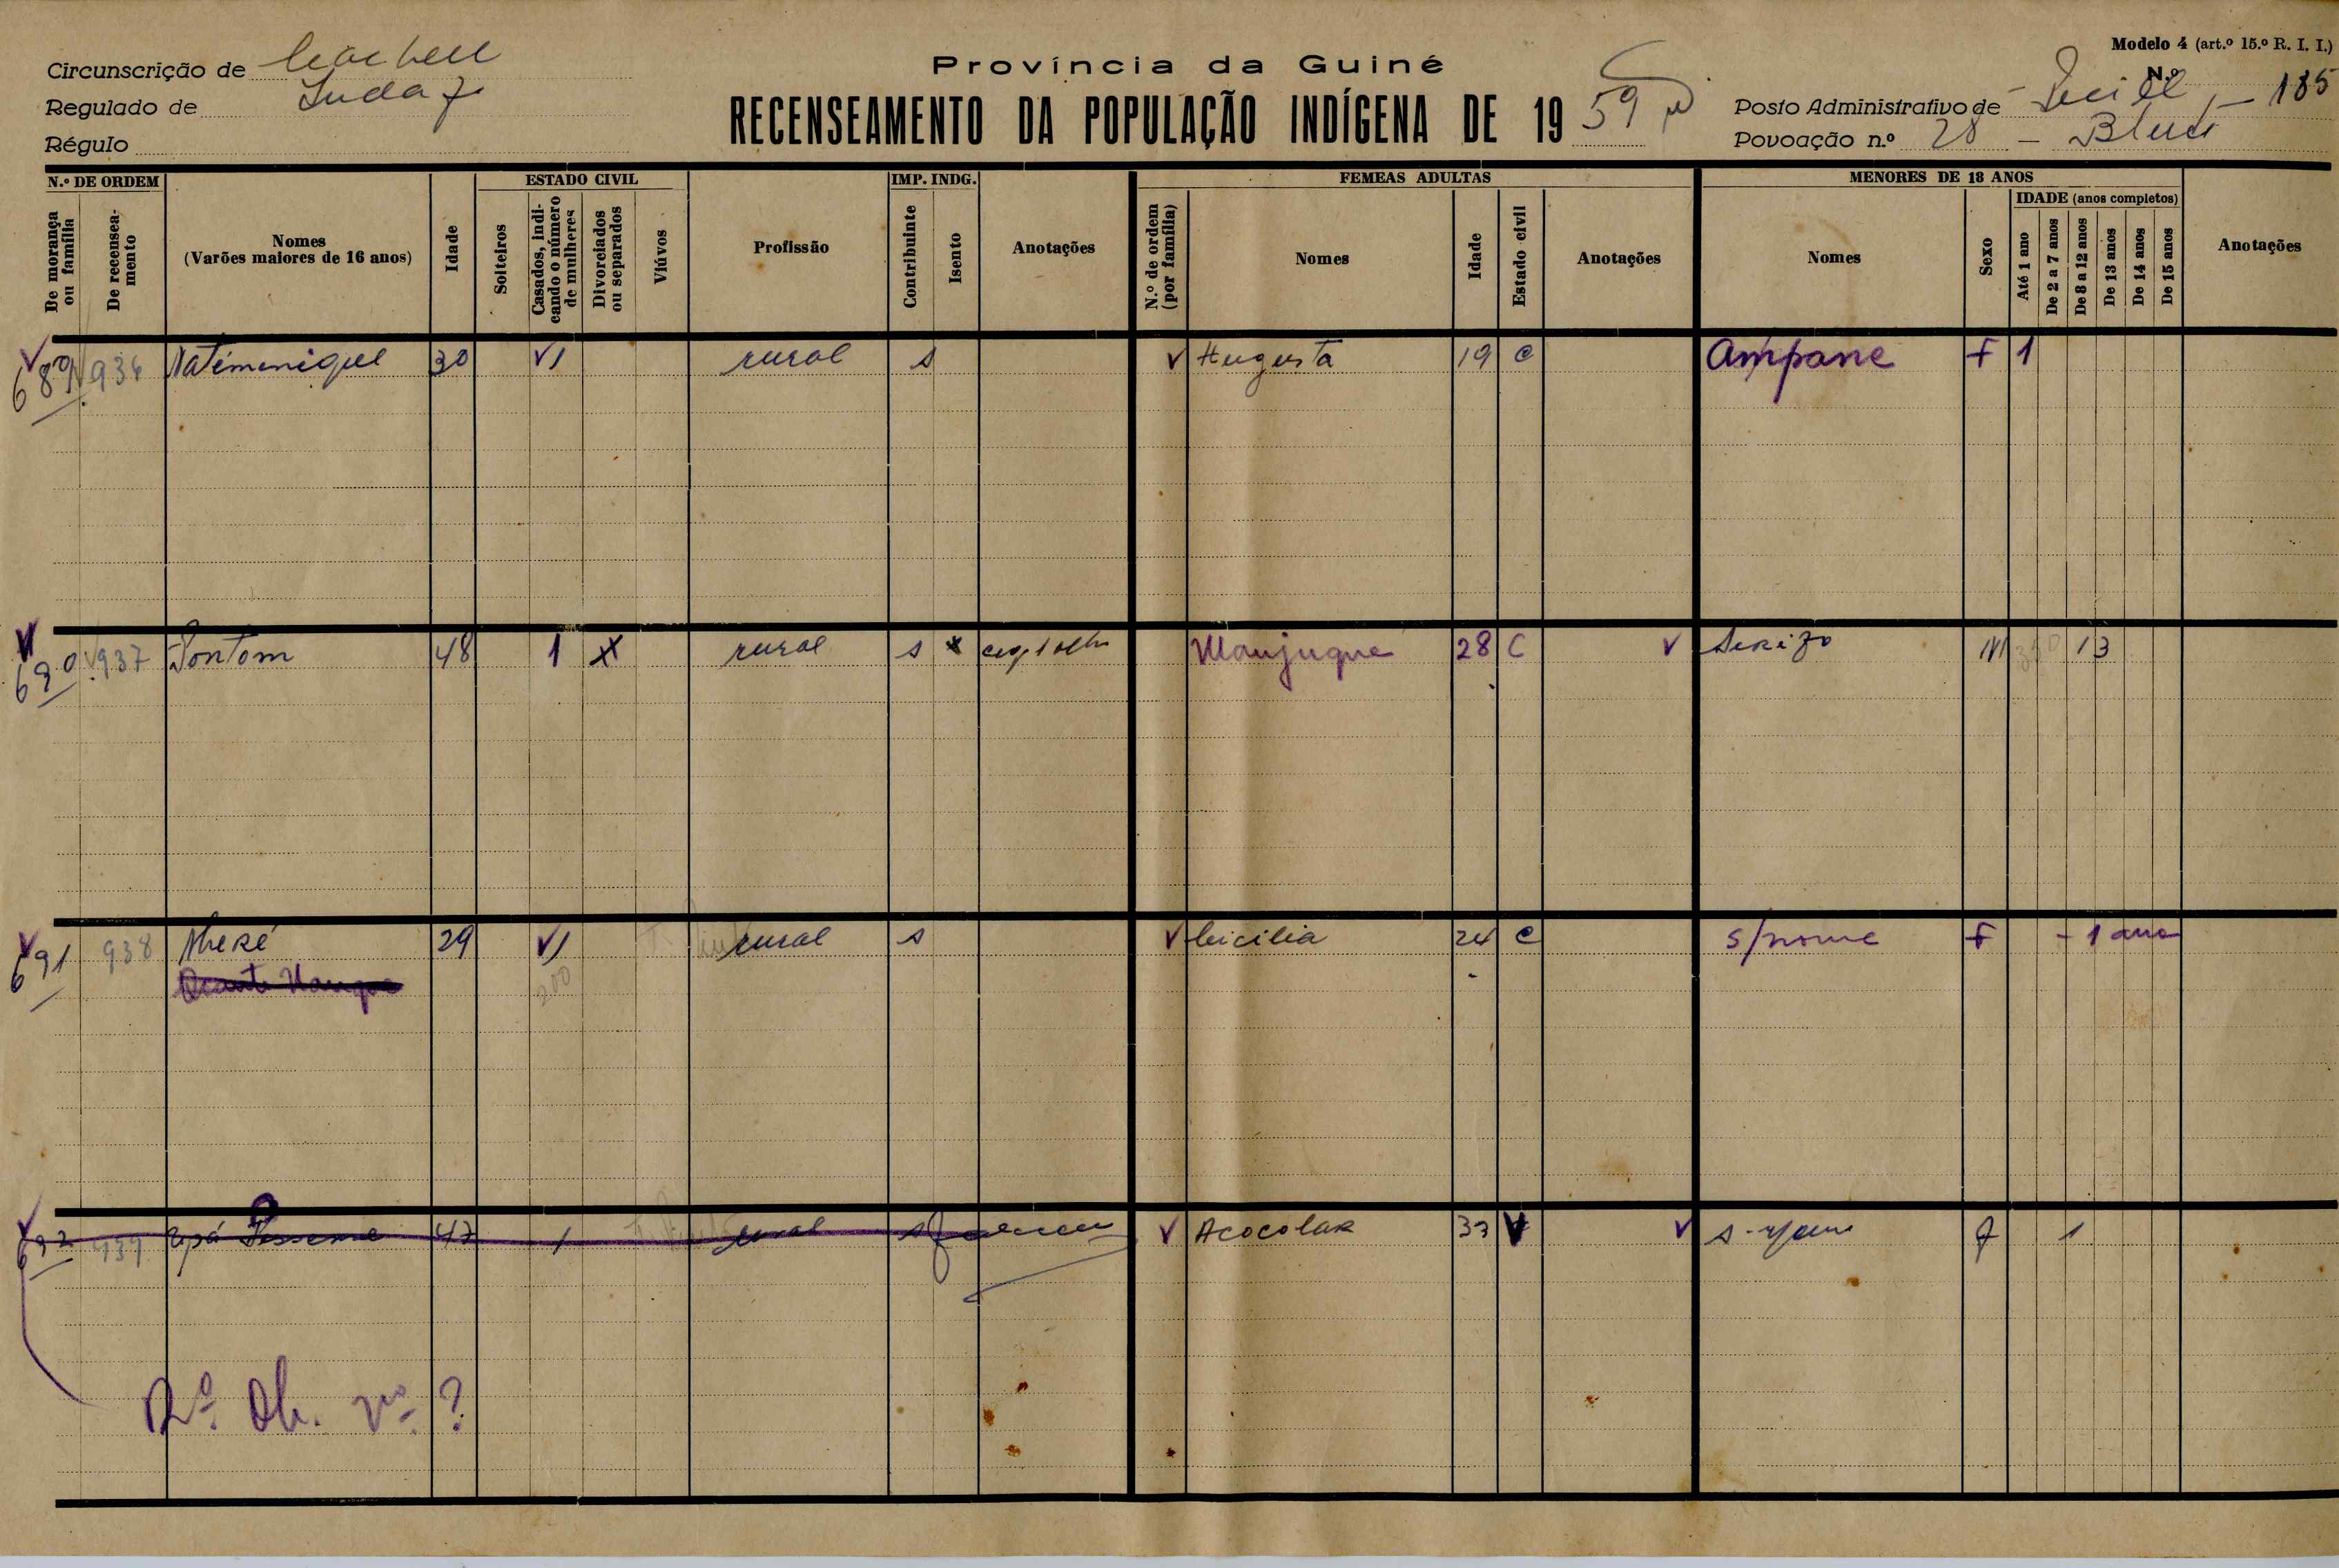 Modelo 4 (art.º 15.º R. I. I.)
Província da Guiné
Circunscrição de
Nº 185
RECENSEAMENTO DA POPULAÇÃO INDÍGENA DE 1959
Regulado de
Posto Administrativo de
Régulo
Povoação n.º 28 –
N.º DE ORDEM
De morança ou família
De recenseamento
Nomes
(Varões maiores de 16 anos)
Idade
ESTADO CIVIL
Solteiros
Casados, indicando o número de mulheres
Divorciados ou separados
Viúvos
Profissão
IMP. INDG.
Contribuinte
Isento
Anotações
FEMEAS ADULTAS
N.º de ordem (por família)
Nomes
Idade
Estado civil
Anotações
MENORES DE 18 ANOS
Nomes
Sexo
IDADE (anos completos)
Até 1 ano
De 2 a 7 anos
De 8 a 12 anos
De 13 anos
De 14 anos
De 15 anos
Anotações
689 936 Natemenique 30 V1 rural s V Augusta 19 C Ampane F 1
690 937 Tontom 48 1 X rural s x 1 olho Manjuque 28 C V M 13
691 938 29 V1 rural s V Cicilia 24 C s/nome F - 1 ano
200
692 939 47 1 rural s faleceu V Acocolar 33 V V s-nome f 1
Nº Ob. nº ?